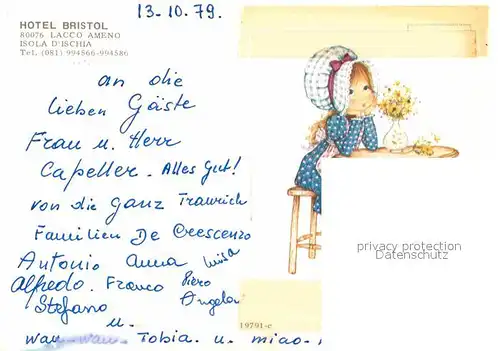 13.10.79.
HOTEL BRISTOL
80076 LACCO AMENO
ISOLA D'ISCHIA
Tel. (081) 994566-994586
an die
lieben Gäste
Frau u. Herr
Capeller. Alles Gut!
von die ganz Traurich
Familien De Crescenzo
Antonio Anna Luisa
Alfredo. Franco Piero
Stefano Angela
u.
wau-wau. Tobia. u. miao-
privacy protection
Datenschutz
19791-c